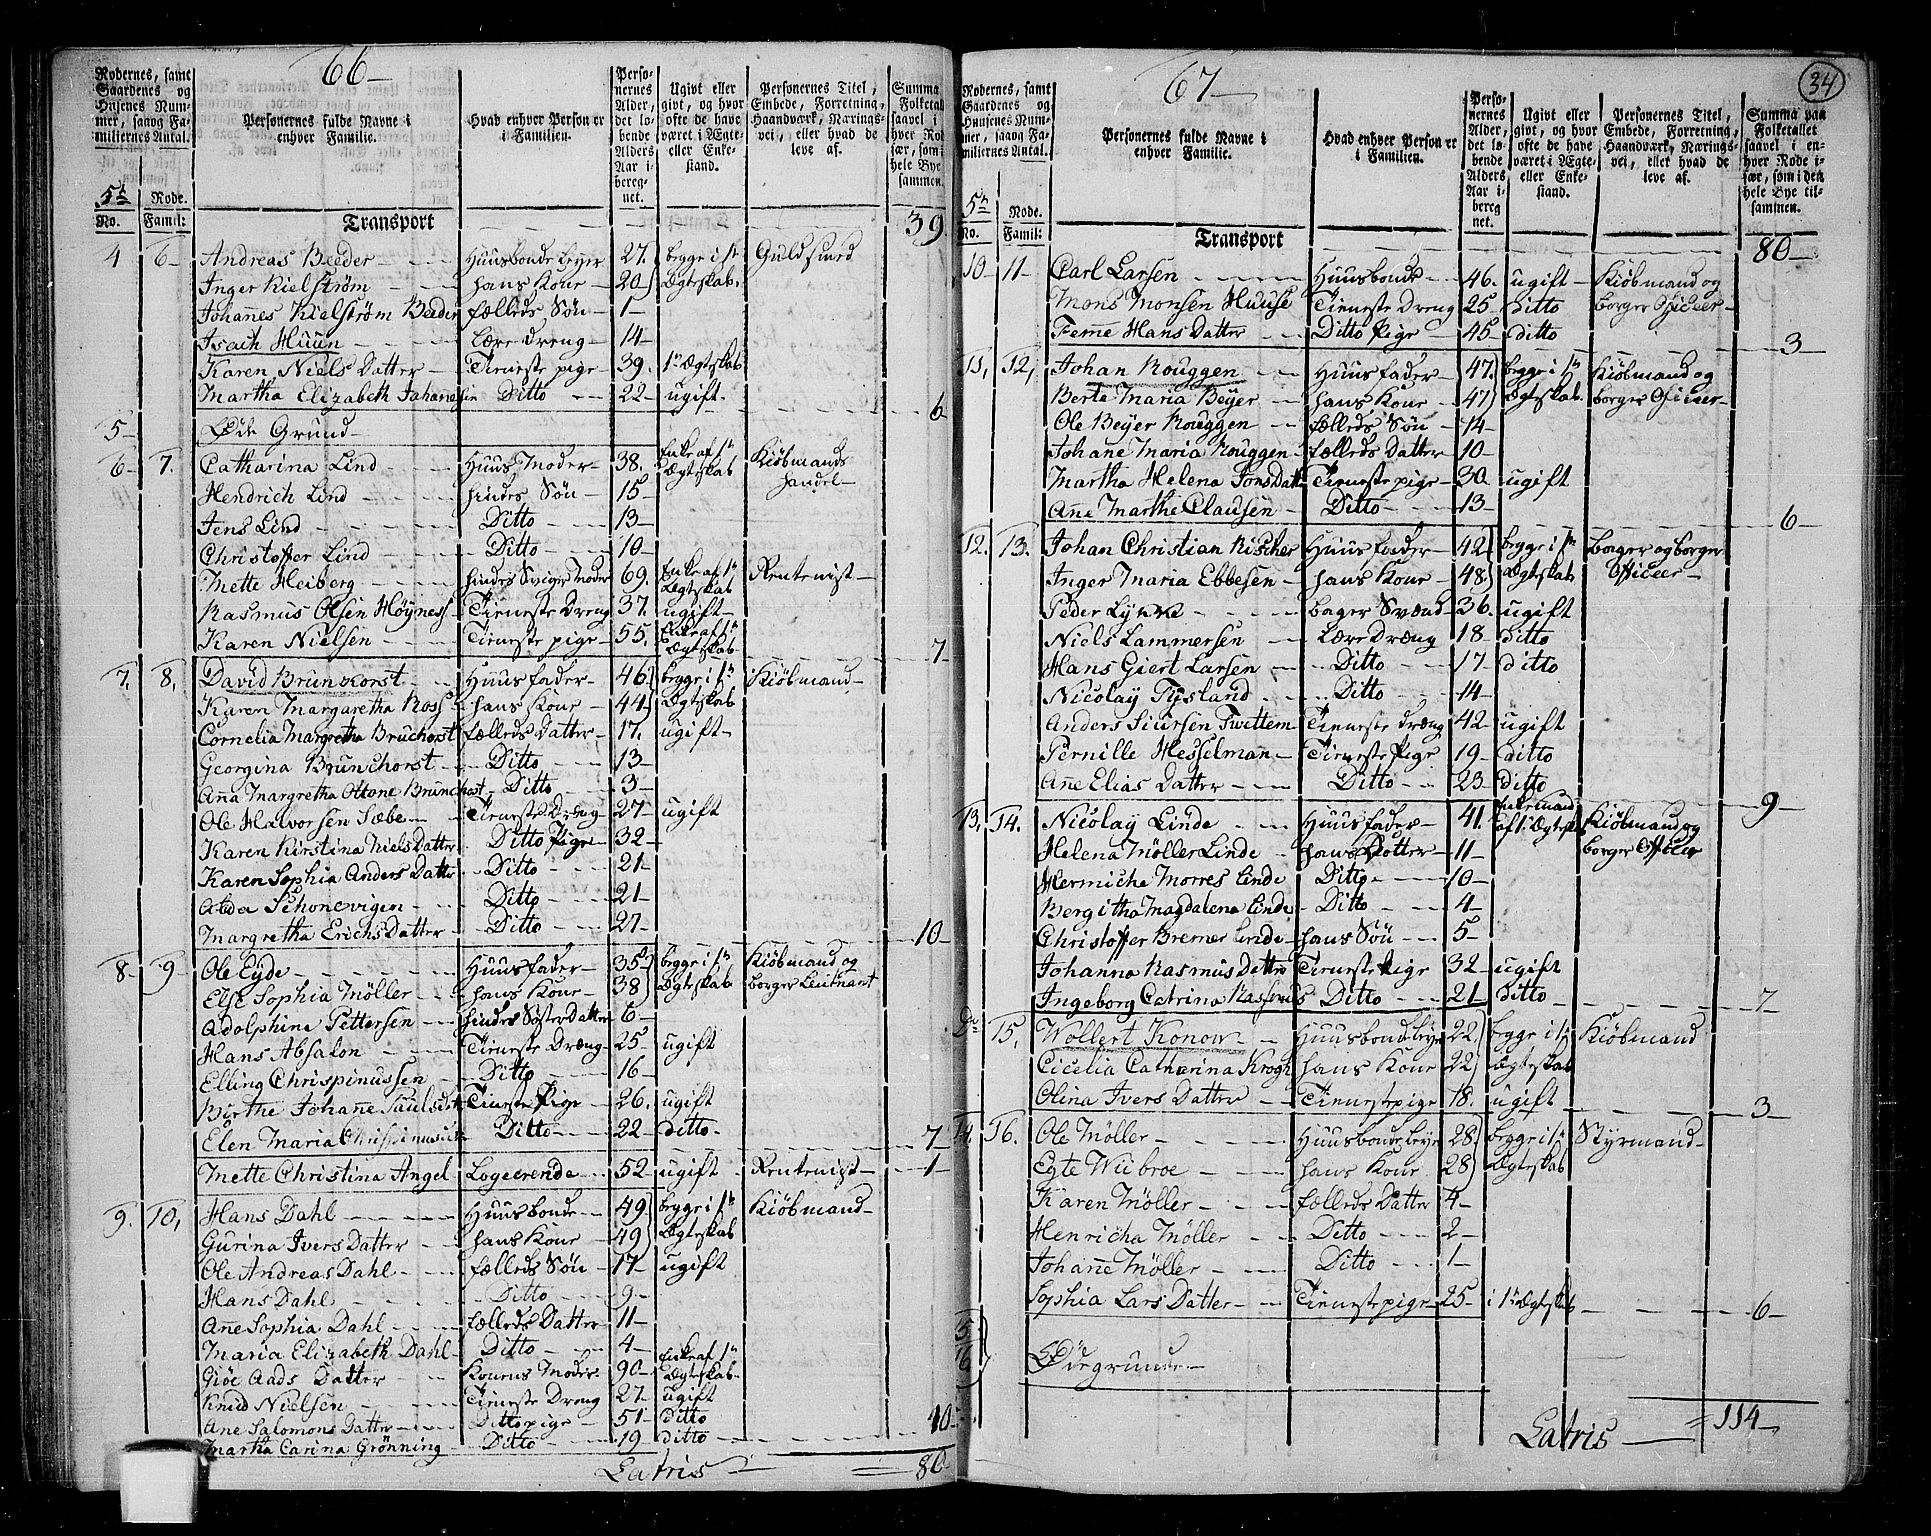 66
Rodernes, samt Gaardenes og Husenes Nummer, saavg Familiernes Antal.
Personernes fulde Navne i enhver Familie.
Hvad enhver Person er i Familien.
Personernes Alder, det løbende Alders Aar iberegnet.
Ugivt eller givt, og hvor ofte de have været i Ægte- eller Enkestand.
Personernes Titel, Embede, Forretning, Haandværk, Næringsvei, eller hvad de leve af.
Summa Folketal saavel i hver Rode især, som i hele Bye sammen.
5te Rode.
No. Famil:
Transport 39
4 6 Andreas Beeder Huusbonde Leyer 27. begge i 1te Guldsmed
Inger Kielstrøm hans Kone 20 Ægteskab.
Johanes Kielstrøm Beeder fælleds Søn 1
Isach Huun Lære dreng 14
Karen Niels Datter Tieneste pige 39. 1te Ægteskab
Martha Elizabeth Johanesen Ditto 22 ugift 6
5 Øde Grund
6 7. Catharina Lind Huus Moder 38. Enke af 1te Ægteskab Kiøbmands Handel
Hendrich Lind hendes Søn 15
Jens Lind Ditto 13
Christoffer Lind Ditto 10
Mette Heiberg hendes Sviger Moder 69. Enke af 1te Ægteskab Rentenist
Rasmus Olsen Høynes Tieneste Dreng 37. ugift
Karen Nielsen Tieneste pige 55. Enke af 1te Ægteskab 7
7, 8, David Brunkorst Huus fader 46 begge i 1te Kiøbmand
Karen Margaretha Ross hans Kone 44 Ægteskab
Cornelia Margretha Bruchorst fælleds Datter 17. ugift
Georgina Brunchorst Ditto 13
Anna Margretha Ottone Brunchost Ditto 3
Ole Halvorsen Sæbe Tieneste Dreng 27 ugift
Karen Kirstina Niels Datter Ditto Pige 32
Karen Sophia Anders Datter Ditto 21
Alida Schonevigen Ditto 21
Margretha Erichs Datter Ditto 27 10
8 9 Ole Eyde Huus fader 35 begge i 1te Kiøbmand og
Else Sophia Möller hans Kone 38 Ægteskab borger Leutnant
Adolphine Pettersen hindes Søster Datter 6
Hans Absalon Tieneste Dræng 25 ugift
Elling Chrispinussen Ditto 16
Birthe Johane Paulsdtr Tieneste Pige 26. ugift
Elen Maria Chrispinusen Ditto 22 ditto 7
Mette Christina Angel Logeerende 52 ugift Rentenist 1
9. 10, Hans Dahl Huusbonde 49 begge i 1te Kiøbmand
Gurina Ivers Datter hans Kone 49 Ægteskab
Ole Andreas Dahl fælleds Søn 17 ugift
Hans Dahl Ditto 9
Ane Sophia Dahl fælleds Datter 11
Maria Elizabeth Dahl Ditto 4
Giöe Aads Datter Konens Moder 90 Enke af 1te Ægteskab
Knud Nielsen Tieneste Dreng 27 ugift
Ane Salomons Datter Ditto pige 51 ditto
Martha Carina Grønning Ditto 19 ditto 10
Latris 80
34
67
Rodernes, samt Gaardenes og Husenes Nummer, saavg Familiernes Antal.
Personernes fulde Navne i enhver Familie.
Hvad enhver Person er i Familien.
Personernes Alder, det løbende Alders Aar iberegnet.
Ugivt eller givt, og hvor ofte de have været i Ægte- eller Enkestand.
Personernes Titel, Embede, Forretning, Haandværk, Næringsvei, eller hvad de leve af.
Summa paa Folketallet saavel i enhver Rode især, som i den hele Bye tilsammen.
5te Rode.
No. Famil:
Transport 80
10 11 Carl Larsen Huusbonde 46. ugift Kiøbmand og
Mons Monsen Huuse Tieneste Dreng 25 ditto borger Officeer
Ferne Hans Datter Ditto Pige 45 ditto 3
11, 12, Johan Rouggen Huusfader 47. begge i 1te Kiøbmand og
Berte Maria Beyer hans Kone 47 Ægteskab borger Officeer
Ole Beyer Rouggen fælleds Søn 14
Johane Maria Rouggen fælleds Datter 10
Martha Helena Jons Datt Tieneste pige 30 ugift
Ane Marthe Clausen Ditto 13 6
12. 13. Johan Christian Rischer Huus fader 42 begge i 1te borger og borger
Inger Maria Ebbesen hans Kone 48 Ægteskab Officeer
Peder Lynne bager Svend 36. ugift
Niels Lammersen Lære Dræng 18 ditto
Hans Giert Larsen Ditto 17 ditto
Nicolay Tysland Ditto 14
Anders Siursen Twettem Tieneste dræng 42 ugift
Pernille Hesselman Tieneste Pige 19 ditto
Ane Elias Datter Ditto 23 ditto 9
13, 14. Nicolay Linde Huusfader 41. Enkemand af 1te Ægteskab Kiøbmand og
Helena Möller Linde hans Datter 11 borger Officeer
Hermiche Morres Linde Ditto 10
Bergitha Magdalena Linde Ditto 4
Christoffer Bremer Linde hans Søn 5
Johanna Rasmus Datter Tieneste Pige 32 ugift
Ingeborg Catrina Rasmus Ditto 21 ditto 7
Do 15, Wollert Konow Huusbonde leye 22. begge i 1te Kiøbmand
Cicelia Catharina Krogh hans Kone 22 Ægteskab
Olina Ivers Datter Tieneste pige 18. ugift 3
14. 16. Ole Möller Huusbonde leye 28 begge i 1te Styrmand
Egte Wiibroe hans Kone 28 Ægteskab
Karen Möller fælleds Datter 4
Henricha Möller Ditto 2
Johane Möller Ditto 1
Sophia Lars Datter Tieneste pige 25 i 1te Ægteskab 6
15
16 Ødegrunde
Latris 114